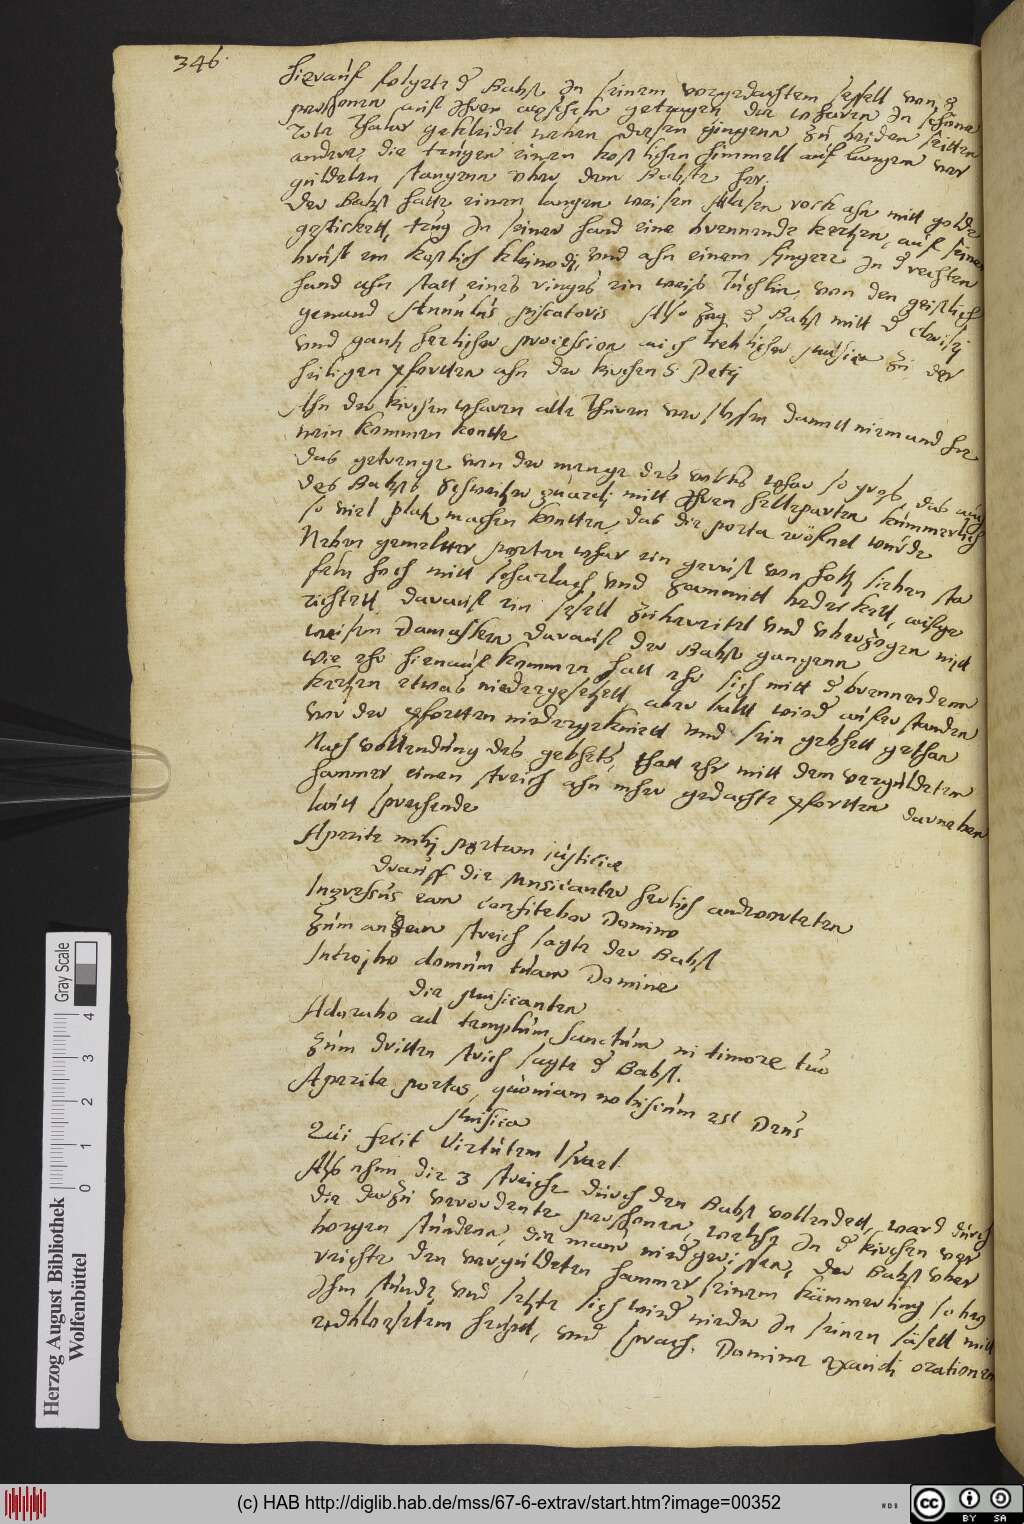 346.
Hierauf folgete d Babst In seinem vorgedachtem sessell von 8
personen auf Ihren axseln getragen die wharen In schöne
rote kleidet neben diesen gingenn zu beiden seitten
andere, die trugen einen kostlichen Himmell auf langen ver
guldeten stangenn uber dem Babste her.
Der Babst hatte einen langen weisen rock ahn mitt golde
gestickett, trug In seiner hand eine brennende kertzen, auf seiner
brust ein kostlich kleinodj, und ahn einem finger In d rechten
hand ahn statt eines ringes ein weis tuchlin, von den geistlich
genand Annulus piscatoris Also zog d Babst mitt d clerisej
und gantz herlicher procession auch lieblicher musica zu der
heiligen pfortten ahn der kirchen S. Petrj
Ahn der kirchen wharen alle thuren verschlossen damitt niemand hie
nein kommen konte
das getrenge von der menge des volcks whar so gros, das auch
des Babsts schweitzer guardj mitt Ihren helleparten kummerlich
so viel platz machen kontten das die porta eröfnet wurde
Neben gemeltter porten whar ein gerust von holtz sieben sta
feln hoch mitt scharlach und sammitt bedeckett, aufge
richtett, darauf ein sessell zubereitet und uberzogen mitt
weissem Damasken darauf der Babst gangenn
Wie ehr hienauf kommen hatt ehr sich mitt d brennendenn
kertzen etwas niedergesetzett aber baltt wied aufer standen
vor der pfortten niedergekniett und sein gebett gethan
Nach vollendung des gebets, thatt ehr mitt dem verguldeten
hammer einen streich ahn mher gedachte pfortten darneben
lautt sprechende
Aperite mihj portam justiciae
Drauff die Musicanten herlich andtwortteten
Ingressus eam confitebor Domino
Zum andern streich sagte der Babst
Introibo domum tuam Domine
die Musicanten
Adorabo ad templum sanctum in timore tuo
Zum dritten streich sagte d Babst.
Aperite portas, quoniam nobiscum est Deus
Musica
Qui fecit virtutem Israel
Als nhun die 3 streiche durch den Babst vollendett, ward durch
die darzu verordente personen, welche In d kirchen ver
borgen stundenn, die maur niedgerissen, der Babst uber
reichte den verguldeten hammer seinem kämmerling so bey
Ihm stunde und setzte sich wied nieder In seinen sässell mitt
endtblostem heupt, und sprach. Domine exaudi orationem
Herzog August Bibliothek
Wolfenbüttel
0 1 2 3 4
Gray Scale
(c) HAB http://diglib.hab.de/mss/67-6-extrav/start.htm?image=00352
WDB
CC BY SA